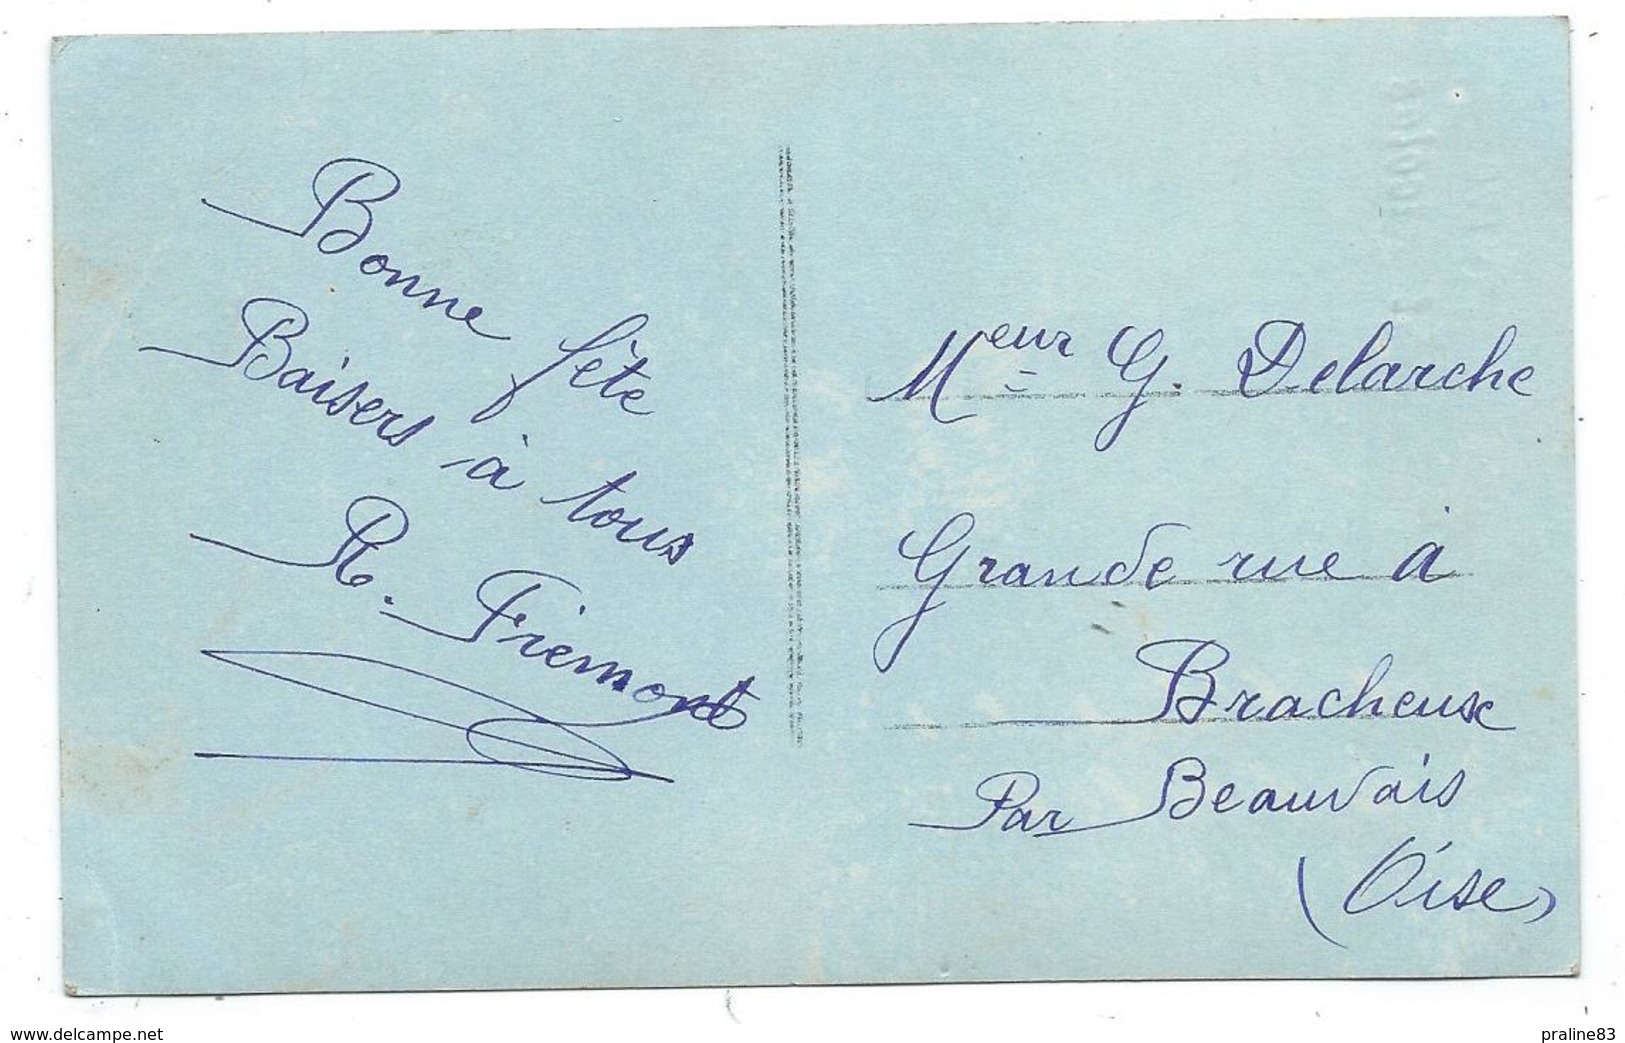 Bonne fête
Baisers à tous
R. Frémont
Meur G. Delarche
Grande rue à
Bracheuse
Par Beauvais
(Oise)
www.delcampe.net
praline83